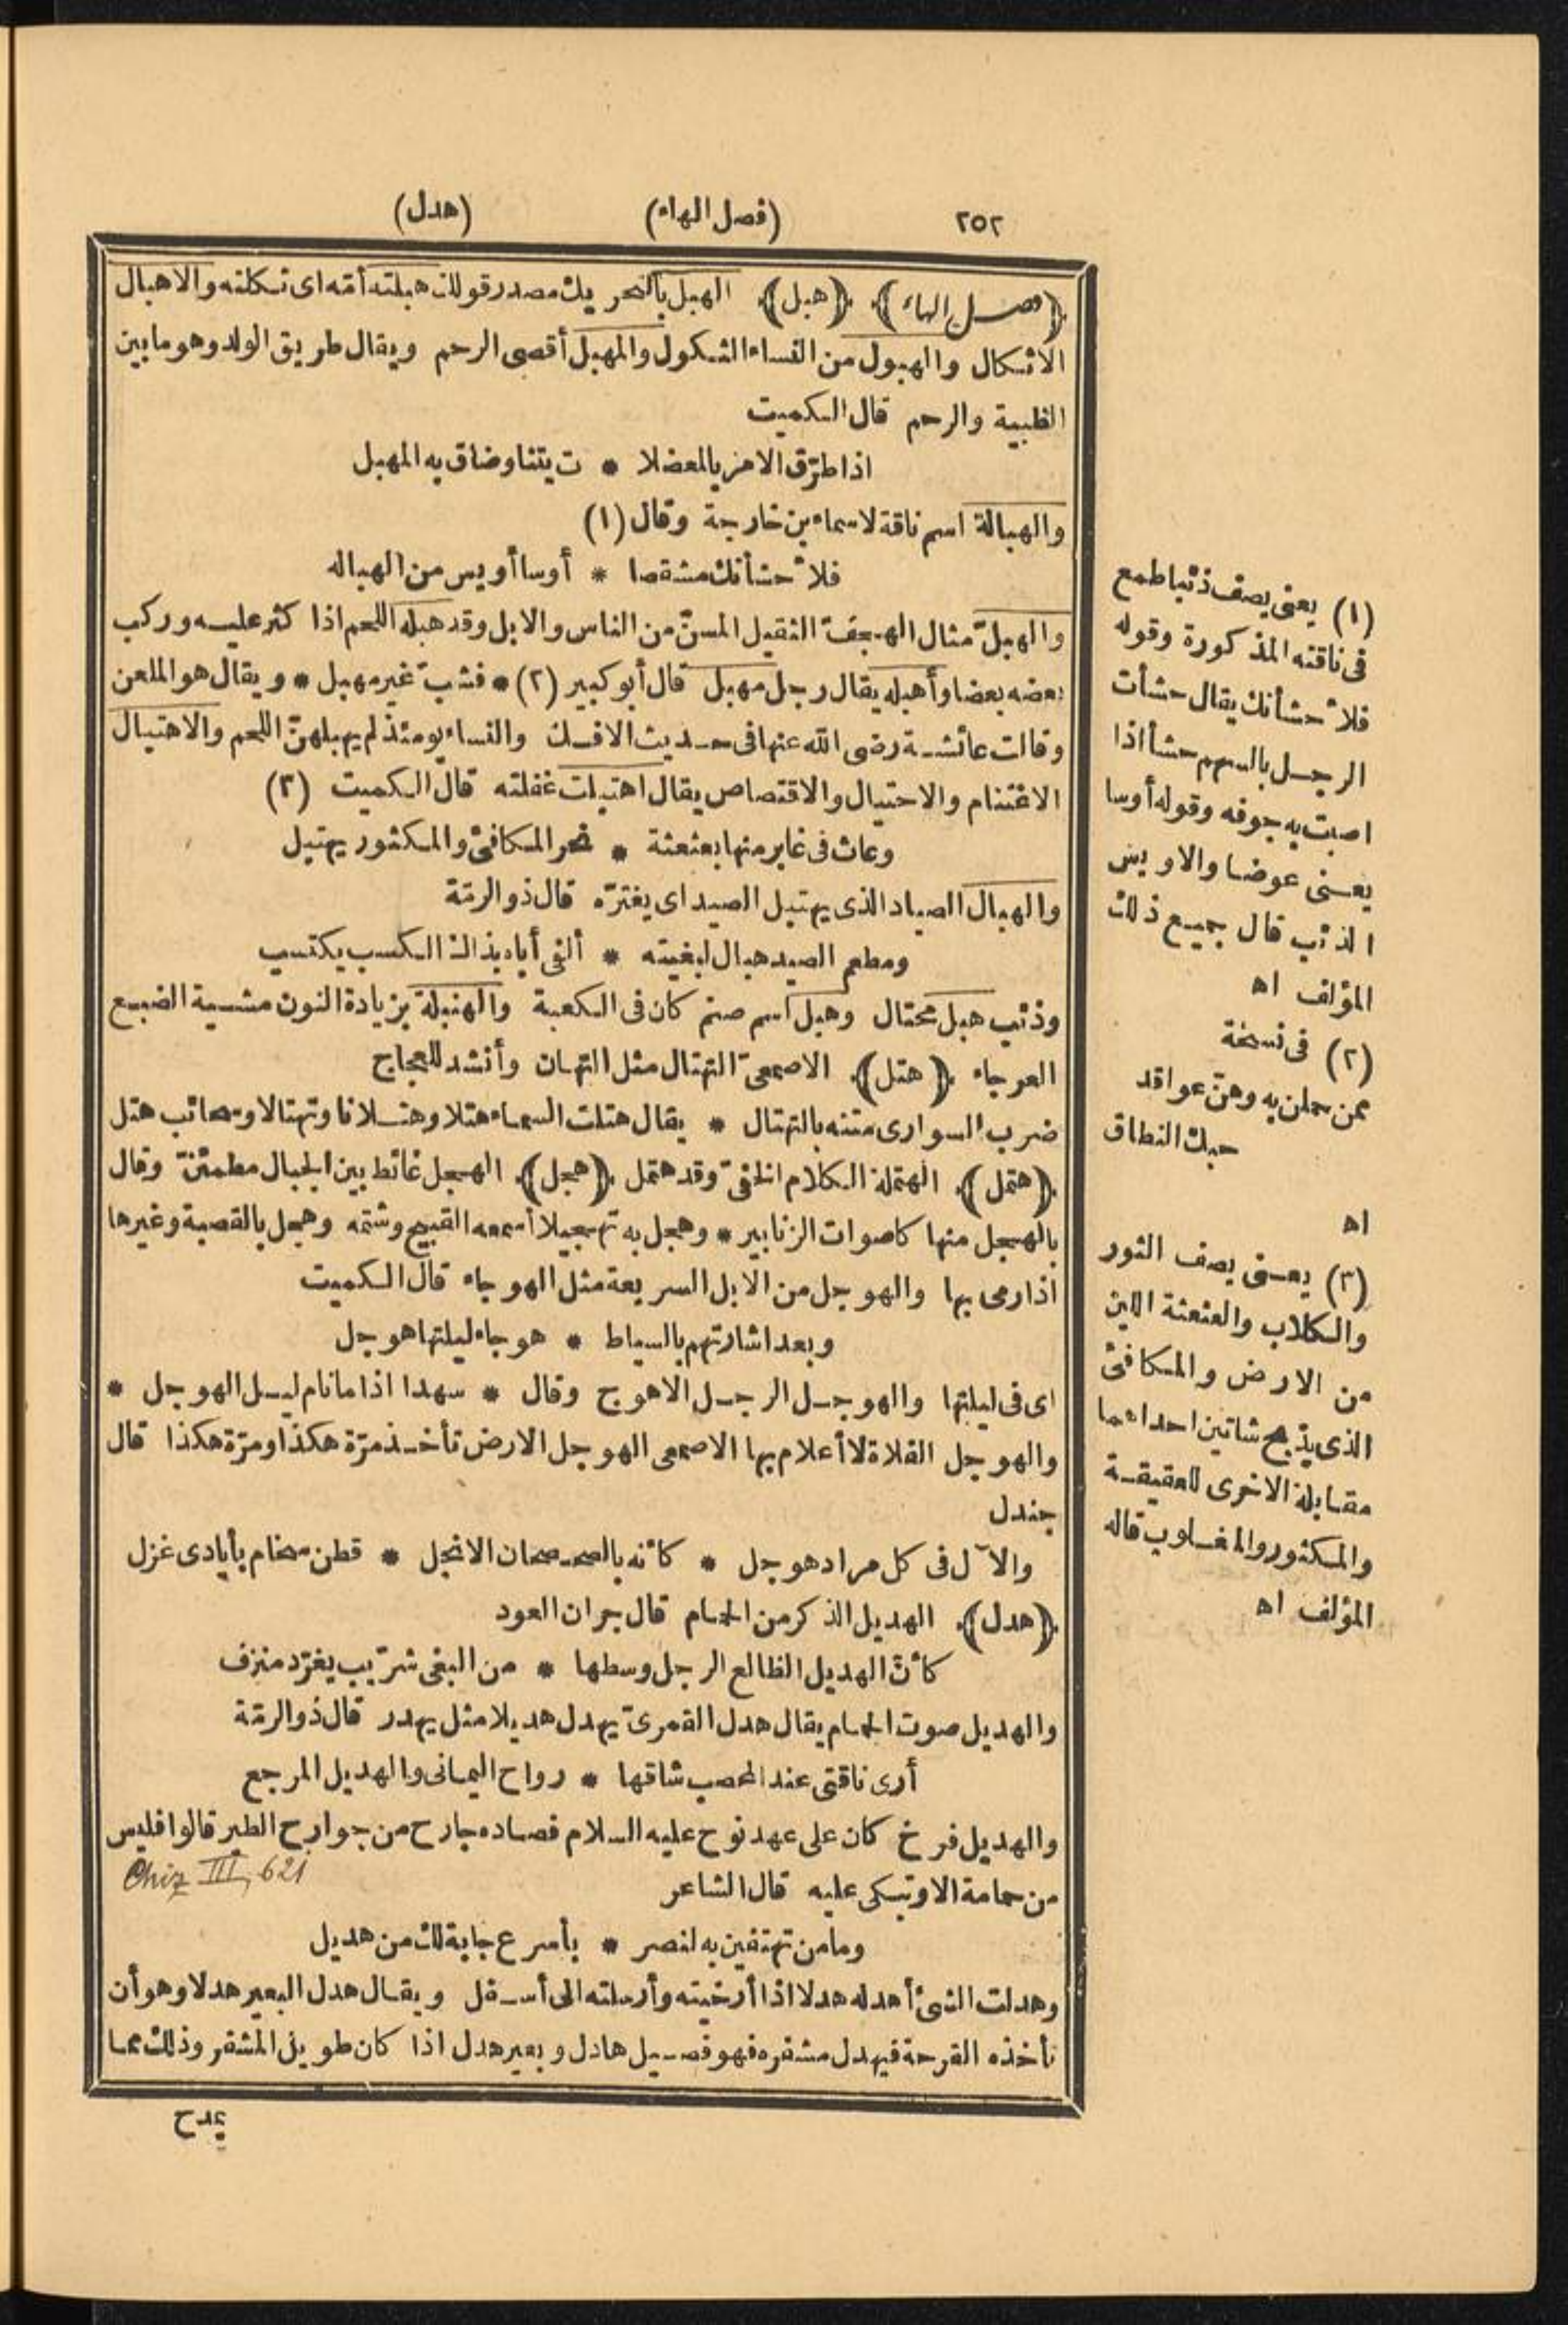 ٢٥٢ (فصل الهاء) (هدل)
﴿فصل الهاء﴾ ﴿هبل﴾ الهبل بالتحريك مصدر قولك هبلته أمّه اى ثكلته والاهبال
الاثكال والهبول من النساء الثكول والمهبل أقصى الرحم ويقال طريق الولد وهو ما بين
الظبية والرحم قال الكميت
اذا طرّق الامر بالمعضلا * ت يتنا وضاق به المهبل
والهبالة اسم ناقة لاسماء بن خارجة وقال (١)
فلأحشأنك مشقصا * أوسا أويس من الهباله
والهبلّ مثال الهجفّ الثقيل المسنّ من الناس والابل وقد هبله اللحم اذا كثر عليه وركب
بعضه بعضا وأهبله يقال رجل مهبل قال أبو كبير (٢) * فشبّ غير مهبل * ويقال هو الملعن
وقالت عائشة رضى الله عنها فى حديث الافك والنساء يومئذ لم يهبلهنّ اللحم والاهتبال
الاغتنام والاحتيال والاقتصاص يقال اهتبلت غفلته قال الكميت (٣)
وعاث فى غابر منها بعثعثة * نحر المكافئ والمكثور يهتبل
والهبال الصياد الذى يهتبل الصيد اى يغترّه قال ذو الرمّة
ومطعم الصيد هبال لبغيته * ألفى أباه بذاك الكسب يكتسب
وذئب هبل محتال وهبل اسم صنم كان فى الكعبة والهنبلة بزيادة النون مشية الضبع
العرجاء ﴿هتل﴾ الاصمعىّ التهتال مثل التهتان وأنشد للعجاج
ضرب السوارى متنه بالتهتال * يقال هتلت السماء هتلا وهتلانا وتهتالا وسحائب هتل
﴿هتمل﴾ الهتملة الكلام الخفىّ وقد هتمل ﴿هجل﴾ الهجل غائط بين الجبال مطمئنّ وقال
بالهجل منها كاصوات الزنابير * وهجل به تهجيلا أسمعه القبيح وشتمه وهجل بالقصبة وغيرها
اذا رمى بها والهوجل من الابل السريعة مثل الهوجاء قال الكميت
وبعد اشارتهم بالسياط * هوجاء ليلتها هوجل
اى فى ليلتها والهوجل الرجل الاهوج وقال * سهدا اذا ما نام ليل الهوجل *
والهوجل الفلاة لا أعلام بها الاصمعى الهوجل الارض تأخذ مرّة هكذا ومرّة هكذا قال
جندل
والآل فى كل مراد هوجل * كأنه بالصحصحان الانجل * قطن سخام بأيادى غزل
﴿هدل﴾ الهديل الذكر من الحمام قال جران العود
كأنّ الهديل الظالع الرجل وسطها * من البغى شرّيب يغرّد منزف
والهديل صوت الحمام يقال هدل القمرىّ يهدل هديلا مثل يهدر قال ذو الرمّة
أرى ناقتى عند المحصب شاقها * رواح اليمانى والهديل المرجع
والهديل فرخ كان على عهد نوح عليه السلام فصاده جارح من جوارح الطير قالوا فليس
من حمامة الا وتبكى عليه قال الشاعر
Chiz III, 621
وما من تهتفين به لنصر * بأسرع جابة لك من هديل
وهدلت الشئ أهدله هدلا اذا أرخيته وأرسلته الى أسفل ويقال هدل البعير هدلا وهو أن
تأخذه القرحة فيهدل مشفره فهو فصيل هادل وبعير هدل اذا كان طويل المشفر وذلك مما
يمدح
(١) يعنى يصف ذئبا طمع
فى ناقته المذكورة وقوله
فلأحشأنك يقال حشأت
الرجل بالسهم حشأ اذا
اصبت به جوفه وقوله أوسا
يعنى عوضا والاويس
الذئب قال جميع ذلك
المؤلف اه
(٢) فى نسخة
ممن حملن به وهنّ عواقد
حبك النطاق
اه
(٣) يعنى يصف الثور
والكلاب والعثعثة اللين
من الارض والمكافئ
الذى يذبح شاتين احداهما
مقابلة الاخرى للعقيقة
والمكثور والمغلوب قاله
المؤلف اه